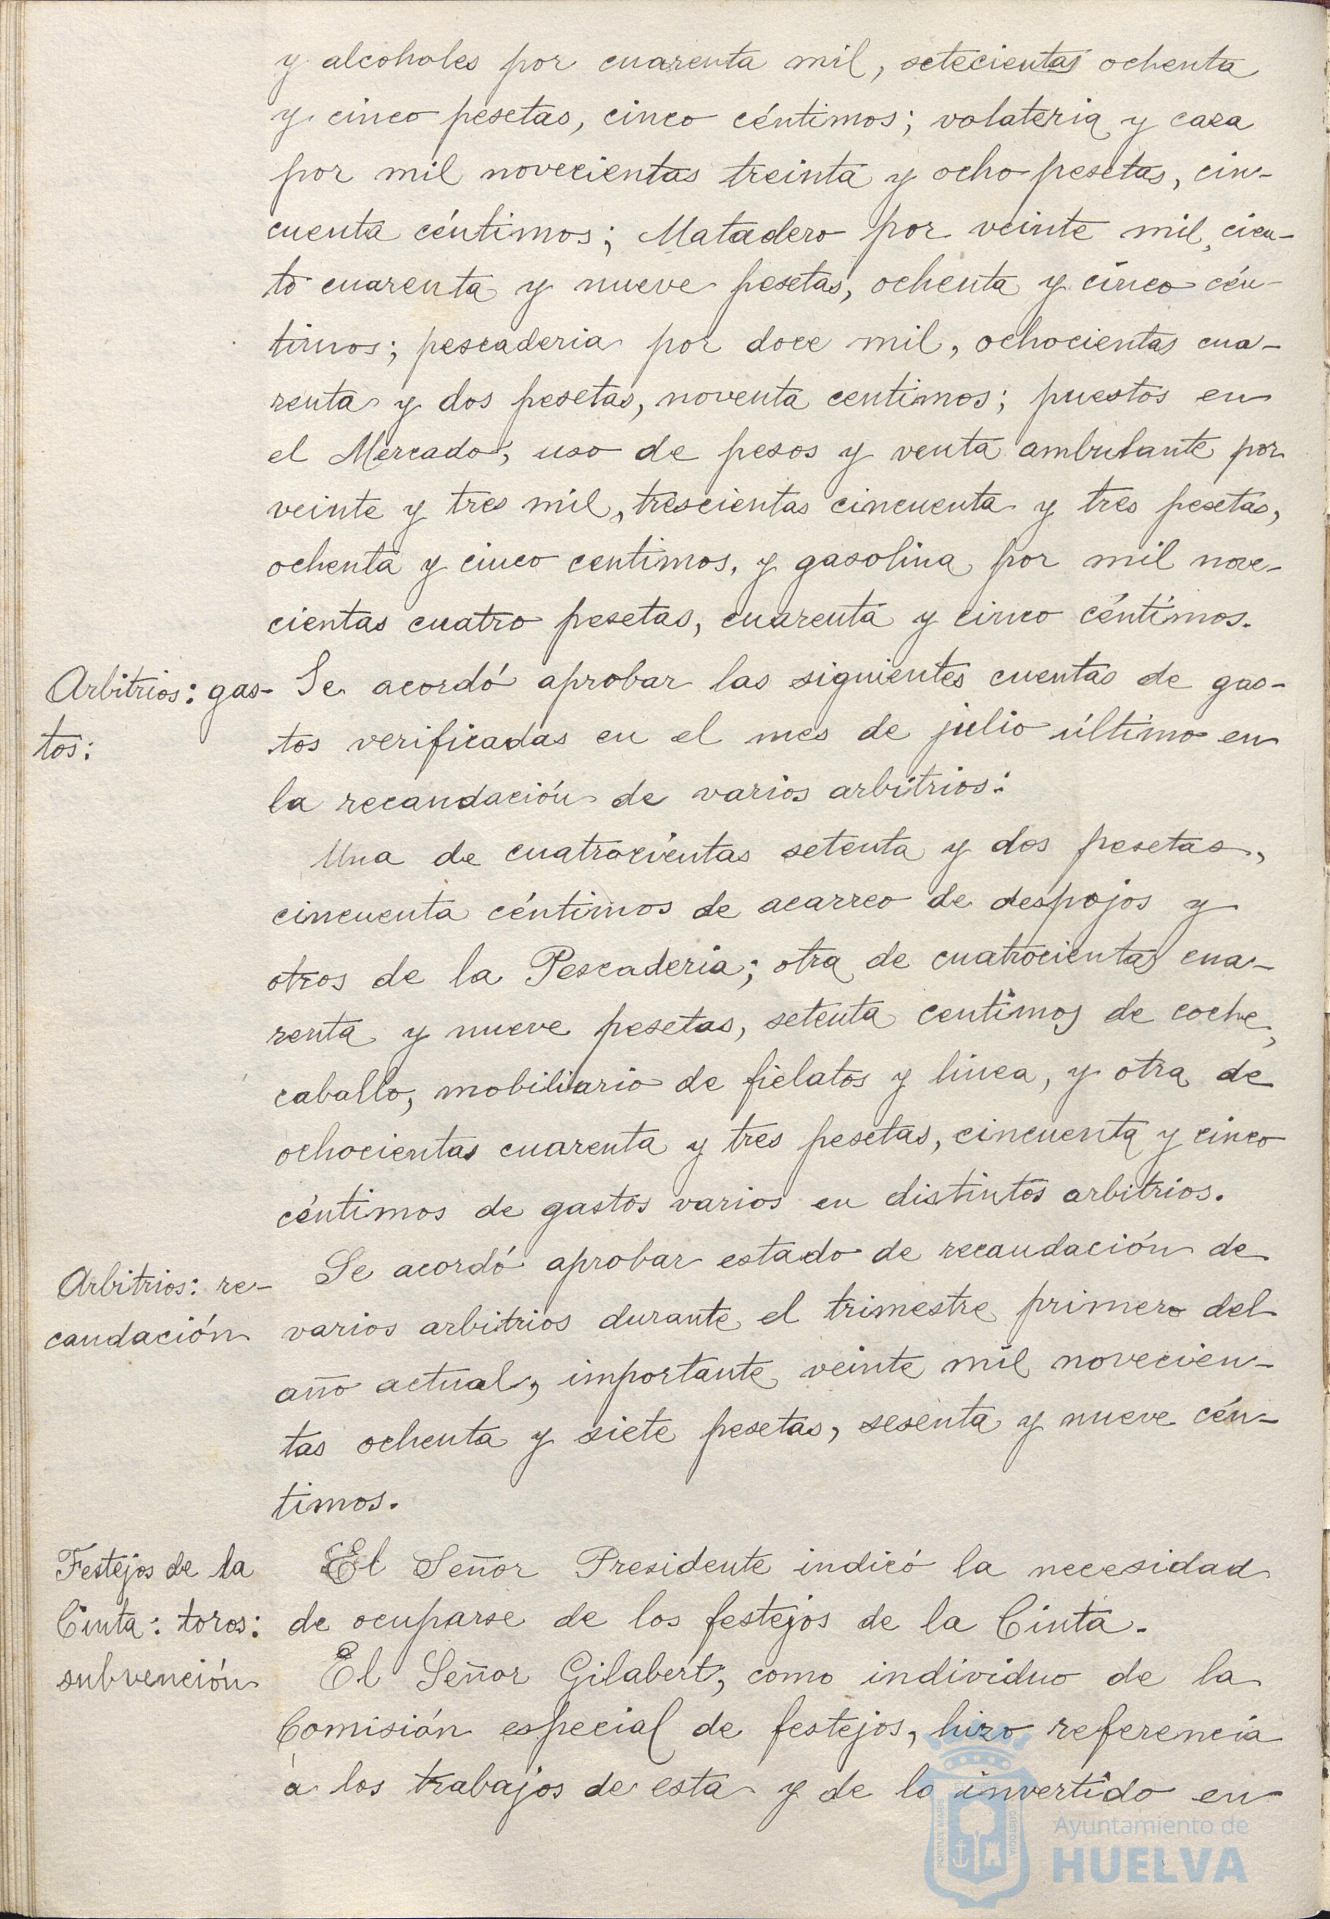 y alcoholes por cuarenta mil, setecientas ochenta
y cinco pesetas, cinco céntimos; volateria y caza
por mil novecientas treinta y ocho pesetas, cin-
cuenta céntimos; Matadero por veinte mil, cien-
to cuarenta y nueve pesetas, ochenta y cinco cén-
timos; pescaderia por doce mil, ochocientas cua-
renta y dos pesetas, noventa centimos; puestos en
el Mercado; uso de pesos y venta ambulante por
veinte y tres mil, trescientas cincuenta y tres pesetas,
ochenta y cinco centimos, y gasolina por mil nove-
cientas cuatro pesetas, cuarenta y cinco céntimos.
Arbitrios: gas-
tos:
Se acordó aprobar las siguientes cuentas de gas-
tos verificadas en el mes de julio último en
la recaudación de varios arbitrios:
Una de cuatrocientas setenta y dos pesetas,
cincuenta céntimos de acarreo de despojos y
otros de la Pescaderia; otra de cuatrocientas cua-
renta y nueve pesetas, setenta centimos de coche,
caballo, mobiliario de fielatos y linea, y otra de
ochocientas cuarenta y tres pesetas, cincuenta y cinco
céntimos de gastos varios en distintos arbitrios.
Arbitrios: re-
caudación
Se acordó aprobar estado de recaudación de
varios arbitrios durante el trimestre primero del
año actual, importante veinte mil novecien-
tas ochenta y siete pesetas, sesenta y nueve cén-
timos.
Festejos de la
Cinta: toros:
subvención
El Señor Presidente indicó la necesidad
de ocuparse de los festejos de la Cinta.
El Señor Gilabert, como individuo de la
Comisión especial de festejos, hizo referencia
á los trabajos de esta y de lo invertido en
Ayuntamiento de
HUELVA